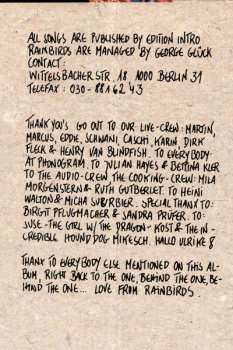 ALL SONGS ARE PUBLISHED BY EDITION INTRO
RAINBIRDS ARE MANAGED BY GEORGE GLÜCK
CONTACT:
WITTELSBACHER STR. 18 1000 BERLIN 31
TELEFAX: 030 - 881 62 43
THANK YOU'S GO OUT TO OUR LIVE-CREW: MARTIN,
MARCUS, EDDIE, SCHWANI, CASCHI, KARIN, DIRK
FLECK & HENRY VAN BLINDFISH. TO EVERYBODY
AT PHONOGRAM. TO JULIAN HAYES & BETTINA KLER
TO THE AUDIO-CREW THE COOKING-CREW: MILA
MORGENSTERN & RUTH GUTBERLET. TO HEINI
WALTON & MICHA SUBURBIER. SPECIAL THANX TO:
BIRGIT PFLUGMACHER & SANDRA PRÜFER. TO:
SUSE-THE GIRL W/ THE DRAGON-KOST & THE IN-
CREDIBLE HOUND DOG MIKESCH. HALLO ULRIKE 8
THANX TO EVERYBODY ELSE MENTIONED ON THIS AL-
BUM, RIGHT BACK TO THE ONE, BEHIND THE ONE, BE-
HIND THE ONE... LOVE FROM RAINBIRDS